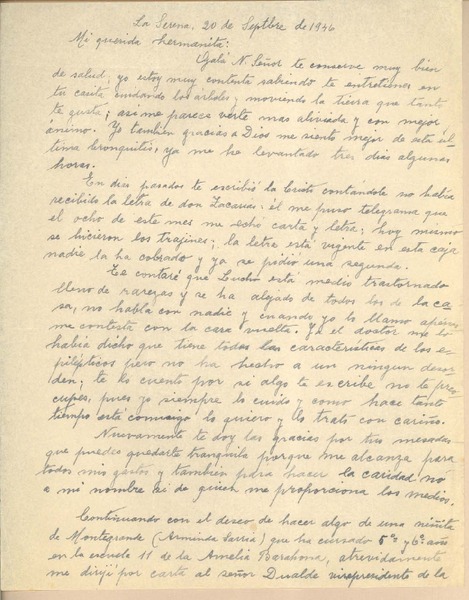 La Serena, 20 de Septbre de 1946
Mi querida hermanita:
Ojalá N. Señor te conserve muy bien
de salud; yo estoy muy contenta sabiendo te entretienes en
tu casita cuidando los árboles y moviendo la tierra que tanto
te gusta; así me parece verte mas aliviada y con mejor
ánimo. Yo tambien gracias a Dios me siento mejor de esta úl-
tima bronquitis; ya me he levantado tres dias algunas
horas.
En dias pasados te escribió la contandote no habia
recibido la letra de don Zacarias: él me puso telegrama que
el ocho de este mes me echó carta y letra; hoy mismo
se hicieron los trajines; la letra está vigente en esta caja
nadie la ha cobrado y ya se pidió una segunda.
Te contaré que Lucho está medio trastornado
lleno de rarezas y se ha alejado de todos los de la ca-
sa, no habla con nadie y cuando yo lo llamo apenas
me contesta con la cara vuelta. Ya el doctor me lo
habia dicho que tiene todas las características de los e-
pilépticos pero no ha hecho a un ningun desor-
den; te lo cuento por si algo te escribe no te preo-
cupes, pues yo siempre lo cuido y como hace tanto
tiempo está conmigo lo quiero y lo trato con cariño.
Nuevamente te doy las gracias por tus mesadas
que puedes quedarte tranquila porque me alcanza para
todos mis gastos y tambien para hacer la caridad no
a mi nombre si de quien me proporciona los medios.
Continuando con el deseo de hacer algo de una niñita
de Montegrande (Arminda Sarria) que ha cursado 5º y 6º años
en la escuela 11 de la Amelia Barahona, atrevidamente
me dirijí por carta al señor Dualde vicepresidente de la